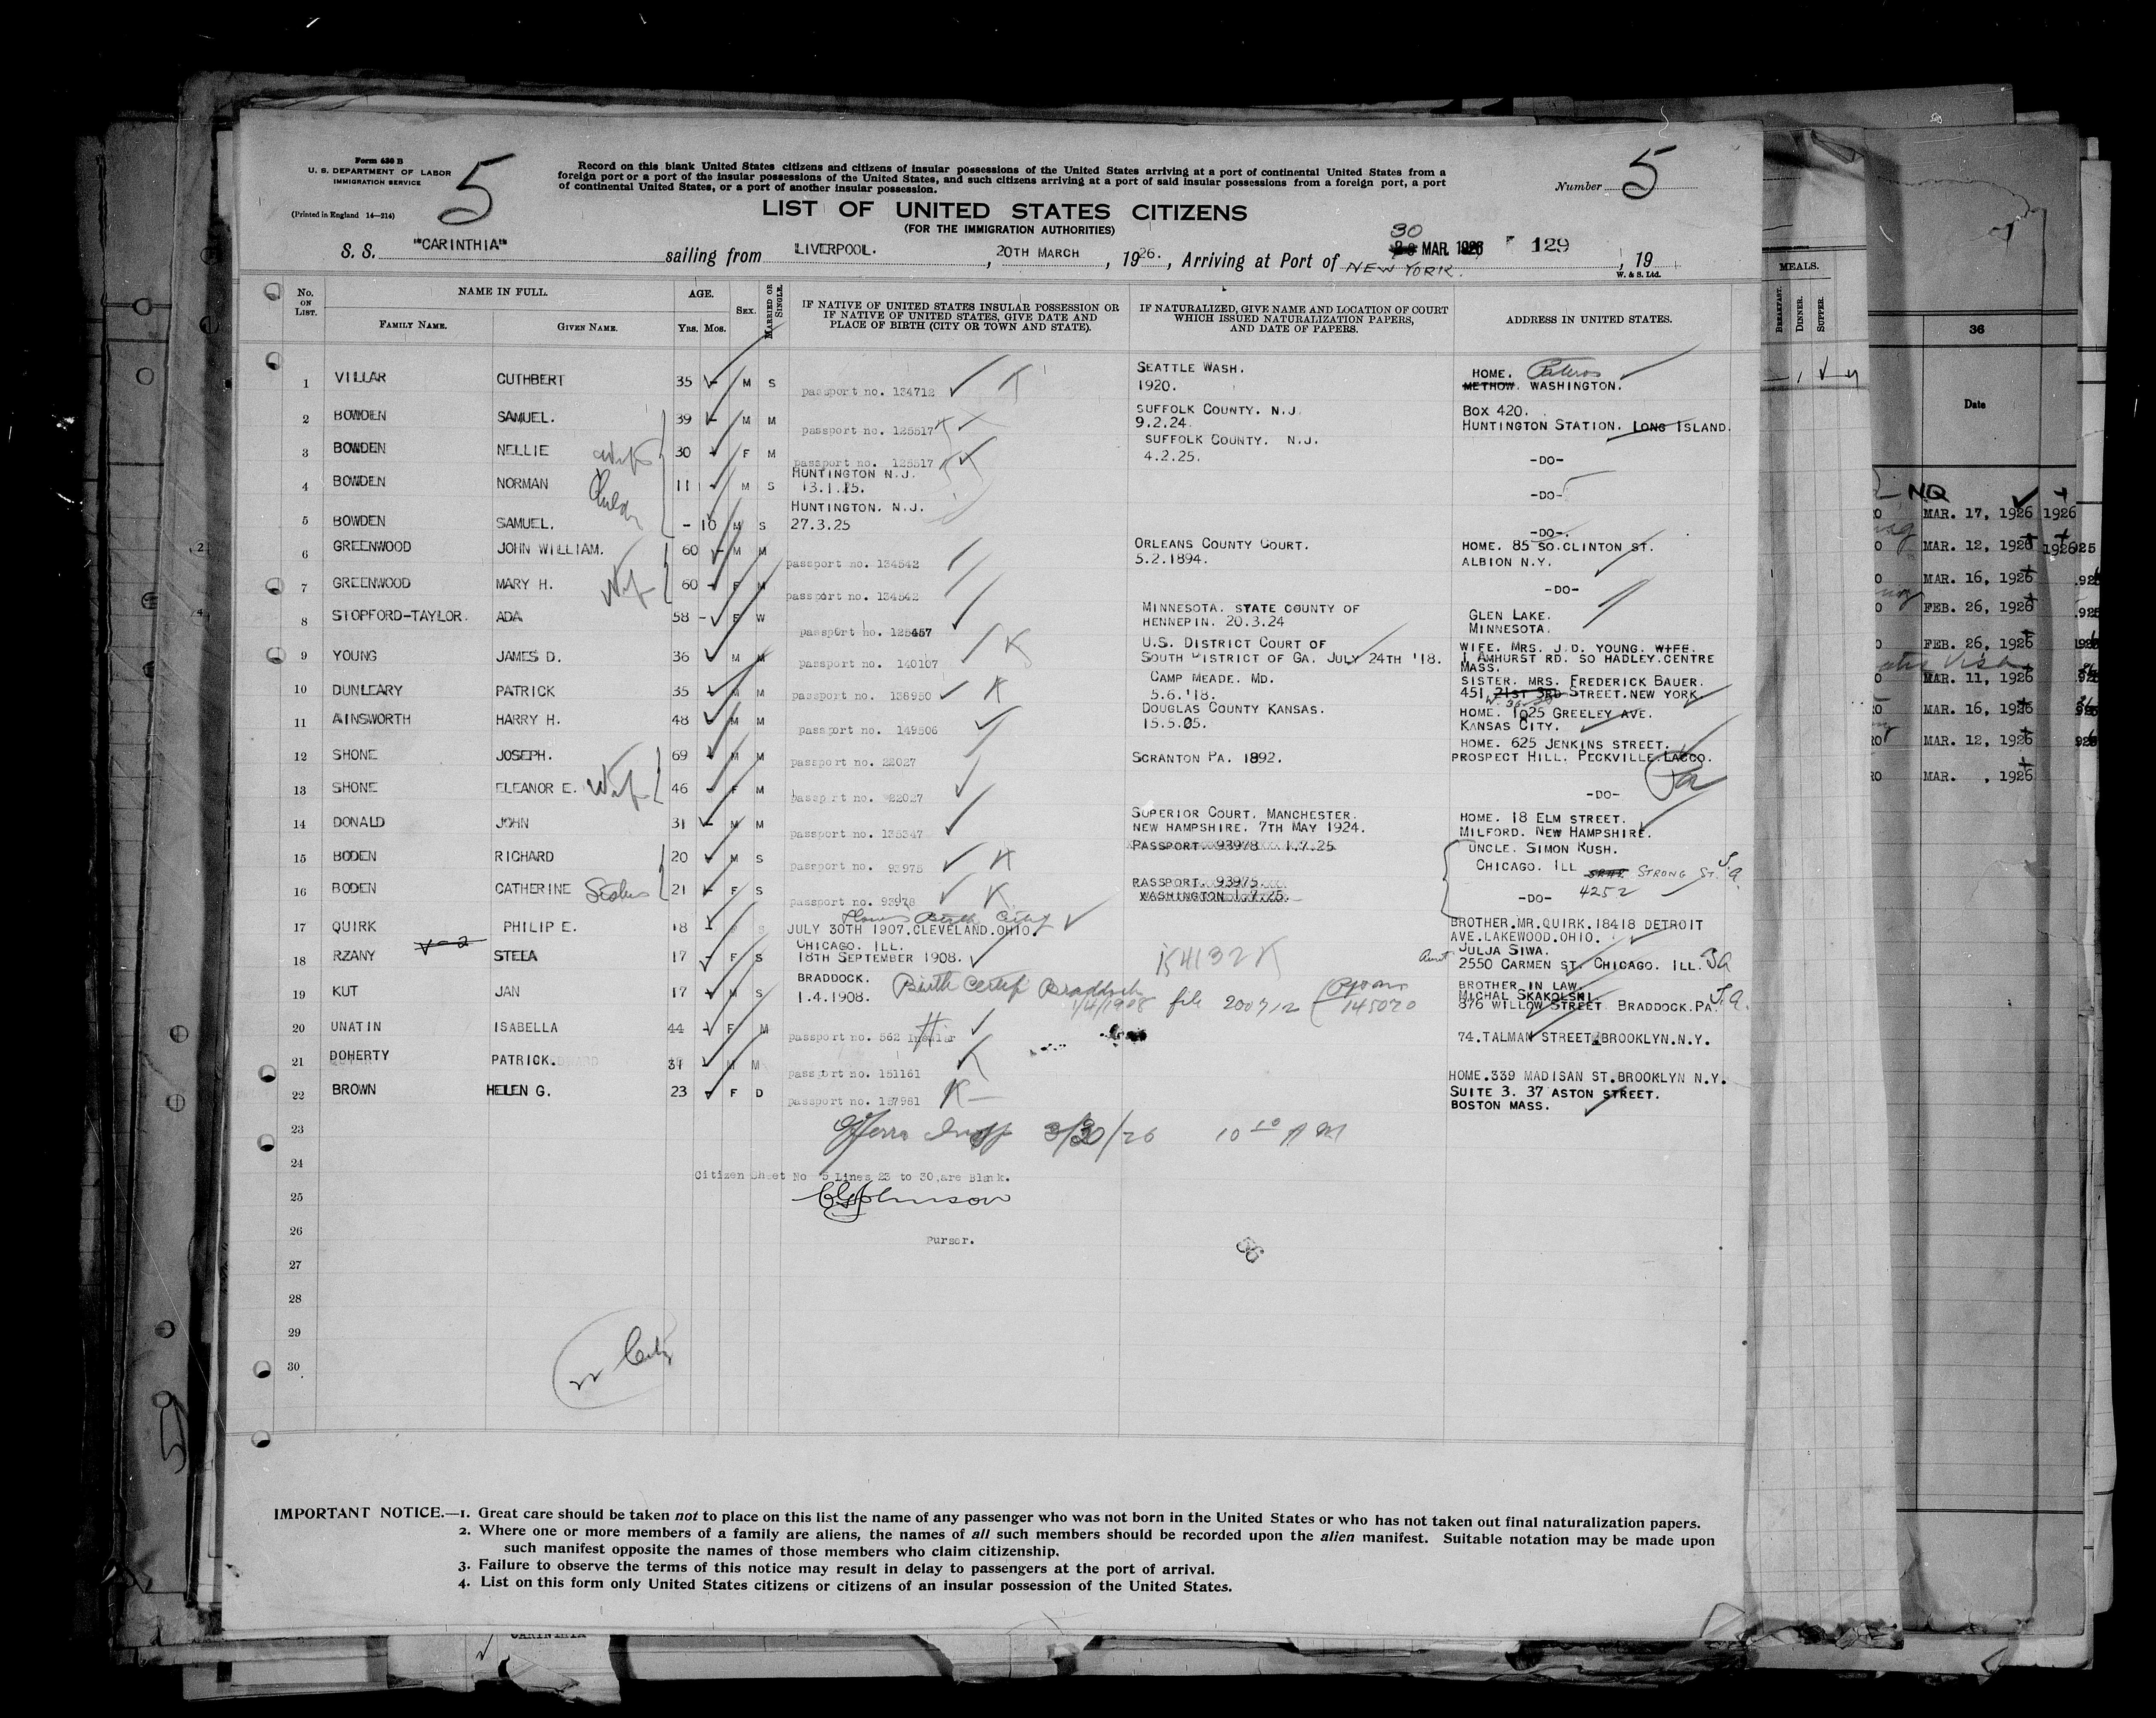 Form 630 B
U. S. DEPARTMENT OF LABOR
IMMIGRATION SERVICE
(Printed in England 14—214)
5
Record on this blank United States citizens and citizens of insular possessions of the United States arriving at a port of continental United States from a
foreign port or a port of the insular possessions of the United States, and such citizens arriving at a port of said insular possessions from a foreign port, a port
of continental United States, or a port of another insular possession.
Number 5
LIST OF UNITED STATES CITIZENS
(FOR THE IMMIGRATION AUTHORITIES)
S. S. "CARINTHIA" sailing from LIVERPOOL. , 20TH MARCH , 1926. , Arriving at Port of NEW YORK. 30 MAR. 1926 129 , 19
W. & S. Ltd.
No. ON LIST.
NAME IN FULL.
FAMILY NAME. GIVEN NAME.
AGE.
Yrs. Mos.
SEX.
MARRIED OR SINGLE.
IF NATIVE OF UNITED STATES INSULAR POSSESSION OR
IF NATIVE OF UNITED STATES, GIVE DATE AND
PLACE OF BIRTH (CITY OR TOWN AND STATE).
IF NATURALIZED, GIVE NAME AND LOCATION OF COURT
WHICH ISSUED NATURALIZATION PAPERS,
AND DATE OF PAPERS.
ADDRESS IN UNITED STATES.
1 VILLAR CUTHBERT 35 - M S passport no. 134712 K SEATTLE WASH. 1920. HOME. Pateros METHOW. WASHINGTON.
2 BOWDEN SAMUEL. 39 - M M passport no. 125517 K SUFFOLK COUNTY. N.J. 9.2.24. BOX 420. HUNTINGTON STATION. LONG ISLAND.
3 BOWDEN NELLIE Wife 30 F M passport no. 125517 SUFFOLK COUNTY. N.J. 4.2.25. -DO-
4 BOWDEN NORMAN Child 11 M S HUNTINGTON N.J. 13.1.15. -DO-
5 BOWDEN SAMUEL. - 10 M S HUNTINGTON. N.J. 27.3.25 -DO-.
6 GREENWOOD JOHN WILLIAM. 60 - M M passport no. 134542 ORLEANS COUNTY COURT. 5.2.1894. HOME. 85 SO.CLINTON ST. ALBION N.Y.
7 GREENWOOD MARY H. Wife 60 F M passport no. 134542 -DO-
8 STOPFORD-TAYLOR. ADA 58 - F W passport no. 125457 MINNESOTA. STATE COUNTY OF HENNEPIN. 20.3.24 GLEN LAKE. MINNESOTA.
9 YOUNG JAMES D. 36 M M passport no. 140107 K U.S. DISTRICT COURT OF SOUTH DISTRICT OF GA. JULY 24TH '18. WIFE. MRS. J.D. YOUNG. WIFE. 1 AMHURST RD. SO HADLEY.CENTRE MASS.
10 DUNLEARY PATRICK 35 M M passport no. 138950 K CAMP MEADE. MD. 5.6.'18. SISTER. MRS. FREDERICK BAUER. 451, 21ST 3RD STREET.NEW YORK.
11 AINSWORTH HARRY H. 48 M M passport no. 149506 DOUGLAS COUNTY KANSAS. 15.5.05. HOME. 1025 GREELEY AVE. KANSAS CITY.
12 SHONE JOSEPH. 69 M M passport no. 22027 SCRANTON PA. 1892. HOME. 625 JENKINS STREET. PROSPECT HILL. PECKVILLE LACCO. Pa
13 SHONE ELEANOR E. Wife 46 F M passport no. 22027 -DO-
14 DONALD JOHN 31 M M passport no. 135347 SUPERIOR COURT. MANCHESTER. NEW HAMPSHIRE. 7TH MAY 1924. HOME. 18 ELM STREET. MILFORD. NEW HAMPSHIRE.
15 BODEN RICHARD 20 M S passport no. 93975 K PASSPORT. 93978 1.7.25 UNCLE. SIMON RUSH. CHICAGO. ILL STRONG ST.
16 BODEN CATHERINE Sister 21 F S passport no. 93978 K PASSPORT. 93975. WASHINGTON 1.7.25. -DO- 4252
17 QUIRK PHILIP E. 18 - S JULY 30TH 1907.CLEVELAND.OHIO. BROTHER.MR.QUIRK.18418 DETROIT AVE.LAKEWOOD.OHIO.
18 RZANY STELA 17 F S CHICAGO. ILL. 18TH SEPTEMBER 1908. 154132 K Aunt JULJA SIWA. 2550 CARMEN ST. CHICAGO. ILL.
19 KUT JAN 17 M S BRADDOCK. 1.4.1908. Birth Certif Braddock 1/4/1908 file 200712 145070 BROTHER IN LAW. MICHAL SKAKOLSKI. 876 WILLOW STREET. BRADDOCK.PA.
20 UNATIN ISABELLA 44 F M passport no. 562 Insular 74.TALMAN STREET.BROOKLYN.N.Y.
21 DOHERTY PATRICK. 31 M M passport no. 151161 HOME.339 MADISAN ST.BROOKLYN N.Y.
22 BROWN HELEN G. 23 - F D passport no. 157981 K SUITE 3. 37 ASTON STREET. BOSTON MASS.
23 3/30/26 10 10 AM
24 Citizen Sheet No 5 Lines 23 to 30,are Blank.
25 Johnson
26 Purser.
27
28
29
30
IMPORTANT NOTICE.—1. Great care should be taken not to place on this list the name of any passenger who was not born in the United States or who has not taken out final naturalization papers.
2. Where one or more members of a family are aliens, the names of all such members should be recorded upon the alien manifest. Suitable notation may be made upon
such manifest opposite the names of those members who claim citizenship.
3. Failure to observe the terms of this notice may result in delay to passengers at the port of arrival.
4. List on this form only United States citizens or citizens of an insular possession of the United States.
MEALS.
BREAKFAST. DINNER. SUPPER.
36
Date
NQ
MAR. 17, 1926 1926
MAR. 12, 1926 1926
MAR. 16, 1926
FEB. 26, 1926
FEB. 26, 1926
MAR. 11, 1926
MAR. 16, 1926
MAR. 12, 1926
MAR. , 1926
CARINTHIA